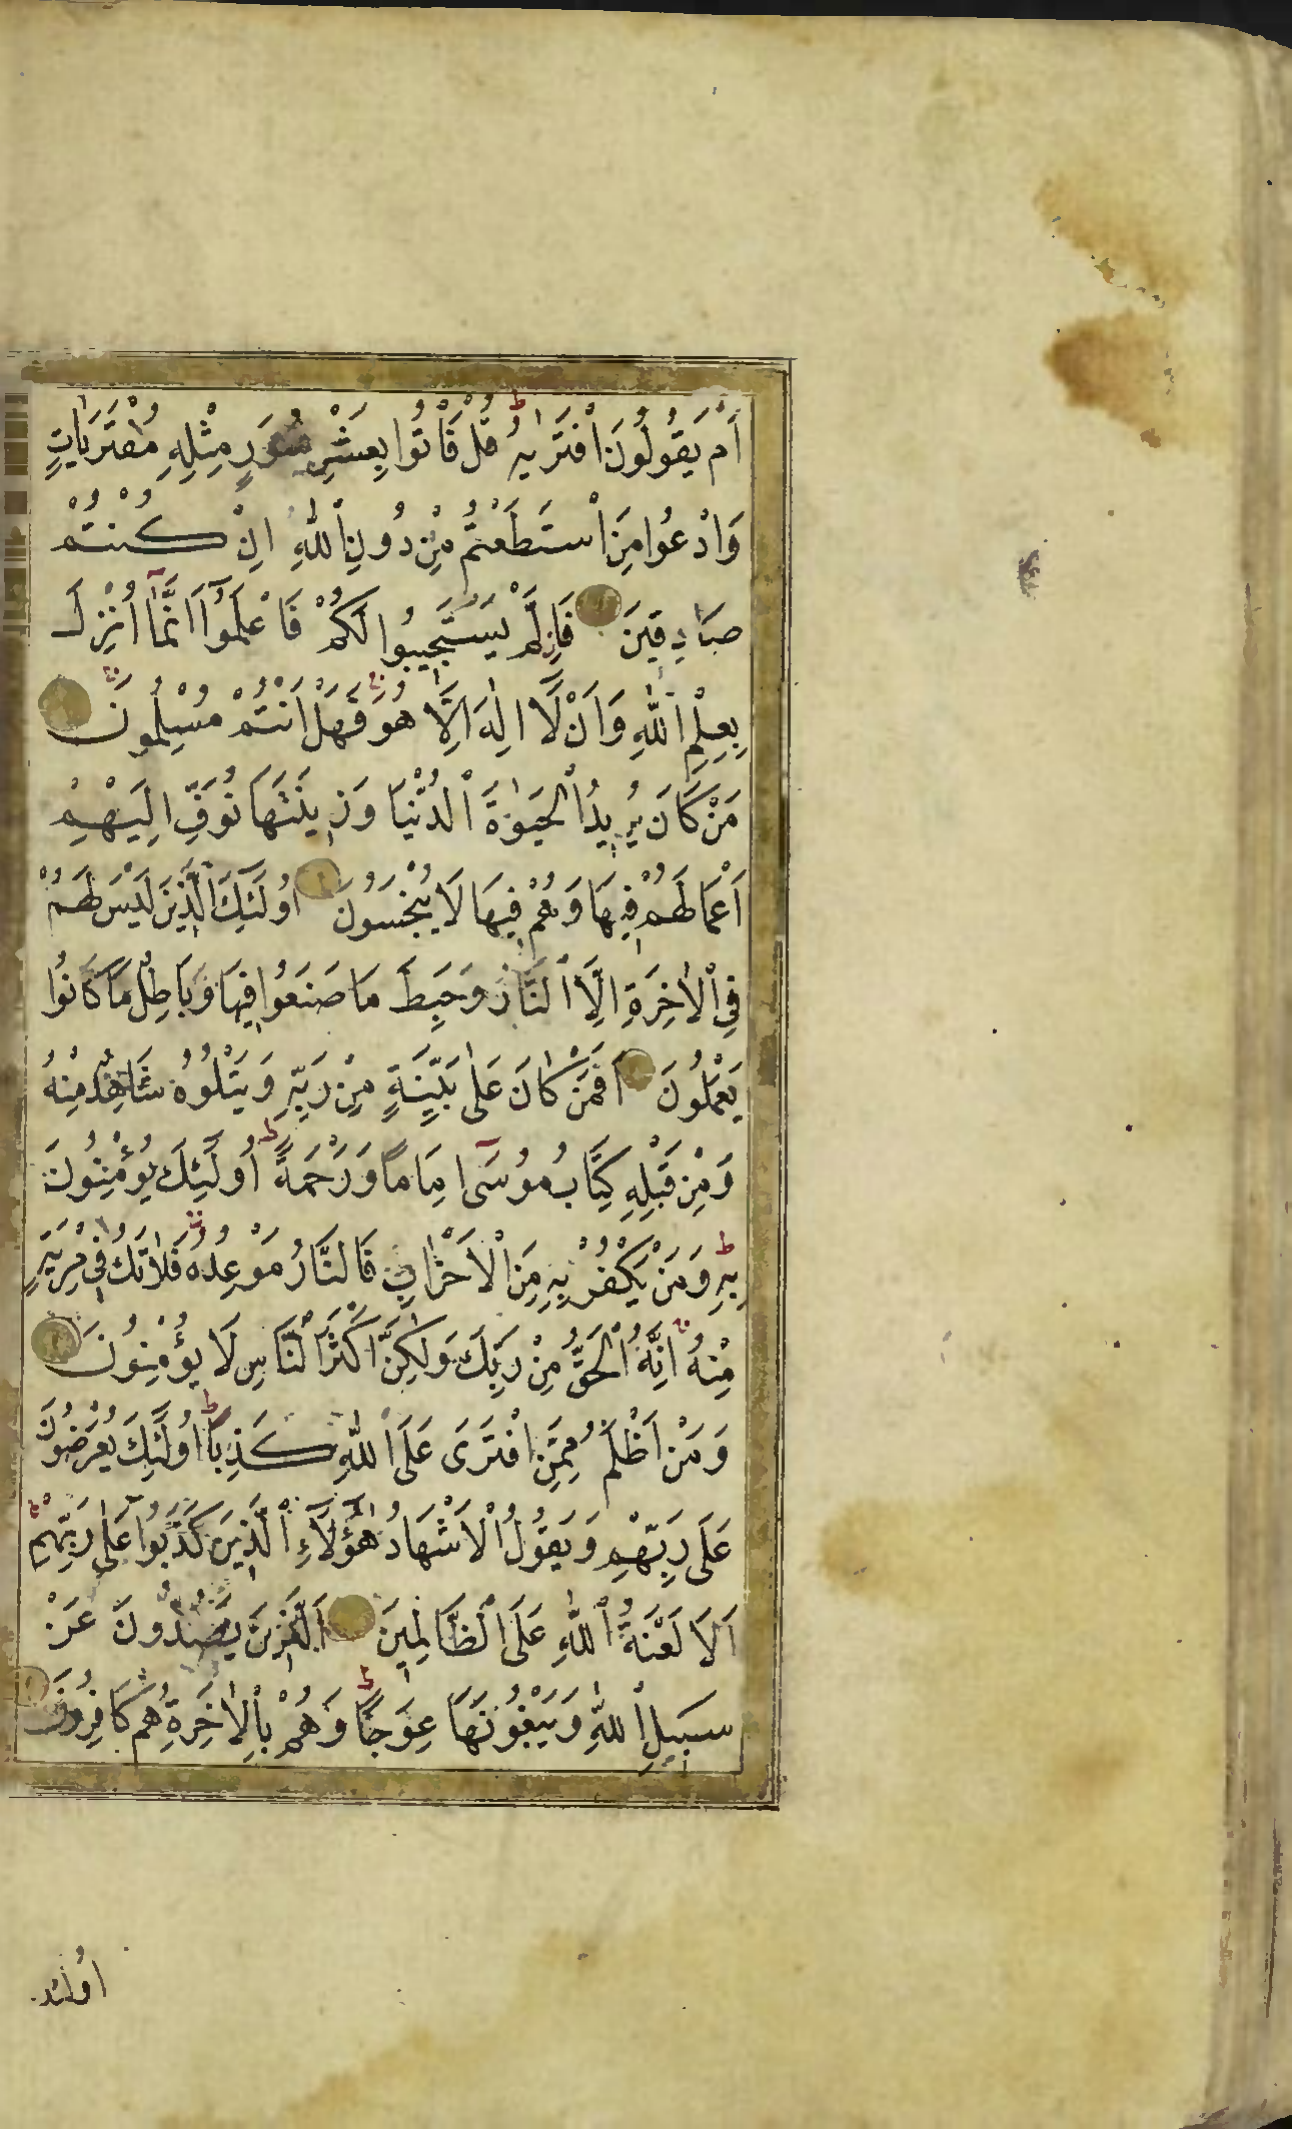 اَمْ يَقُولُونَ افْتَرٰيهُ ط قُلْ فَأْتُوا بِعَشْرِ سُوَرٍ مِثْلِهِ مُفْتَرَيَاتٍ
وَادْعُوا مَنِ اسْتَطَعْتُمْ مِنْ دُونِ اللّٰهِ اِنْ كُنْتُمْ
صَادِقِينَ فَاِلَّمْ يَسْتَجِيبُوا لَكُمْ فَاعْلَمُوا اَنَّمَا اُنْزِلَ
بِعِلْمِ اللّٰهِ وَاَنْ لَا اِلٰهَ اِلَّا هُوَ فَهَلْ اَنْتُمْ مُسْلِمُونَ
مَنْ كَانَ يُرِيدُ الْحَيٰوةَ الدُّنْيَا وَزِينَتَهَا نُوَفِّ اِلَيْهِمْ
اَعْمَالَهُمْ فِيهَا وَهُمْ فِيهَا لَا يُبْخَسُونَ اُولٰئِكَ الَّذِينَ لَيْسَ لَهُمْ
فِي الْاٰخِرَةِ اِلَّا النَّارُ وَحَبِطَ مَا صَنَعُوا فِيهَا وَبَاطِلٌ مَا كَانُوا
يَعْمَلُونَ اَفَمَنْ كَانَ عَلٰى بَيِّنَةٍ مِنْ رَبِّهِ وَيَتْلُوهُ شَاهِدٌ مِنْهُ
وَمِنْ قَبْلِهِ كِتَابُ مُوسٰى اِمَامًا وَرَحْمَةً ط اُولٰئِكَ يُؤْمِنُونَ
بِهِ ط وَمَنْ يَكْفُرْ بِهِ مِنَ الْاَحْزَابِ فَالنَّارُ مَوْعِدُهُ فَلَا تَكُ فِي مِرْيَةٍ
مِنْهُ اِنَّهُ الْحَقُّ مِنْ رَبِّكَ وَلٰكِنَّ اَكْثَرَ النَّاسِ لَا يُؤْمِنُونَ
وَمَنْ اَظْلَمُ مِمَّنِ افْتَرَى عَلَى اللّٰهِ كَذِبًا ط اُولٰئِكَ يُعْرَضُونَ
عَلَى رَبِّهِمْ وَيَقُولُ الْاَشْهَادُ هٰؤُلَاءِ الَّذِينَ كَذَبُوا عَلٰى رَبِّهِمْ
اَلَا لَعْنَةُ اللّٰهِ عَلَى الظَّالِمِينَ اَلَّذِينَ يَصُدُّونَ عَنْ
سَبِيلِ اللّٰهِ وَيَبْغُونَهَا عِوَجًا ط وَهُمْ بِالْاٰخِرَةِ هُمْ كَافِرُونَ
اُولٰئِكَ